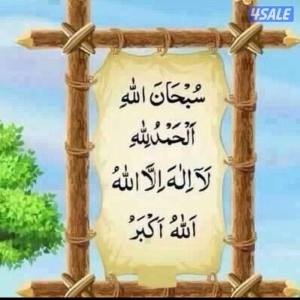 4SALE
سُبْحَانَ اللهِ
اَلْحَمْدُلِلهِ
لَآ اِلٰهَ اِلَّا اللهُ
اَللهُ اَكْبَرُ